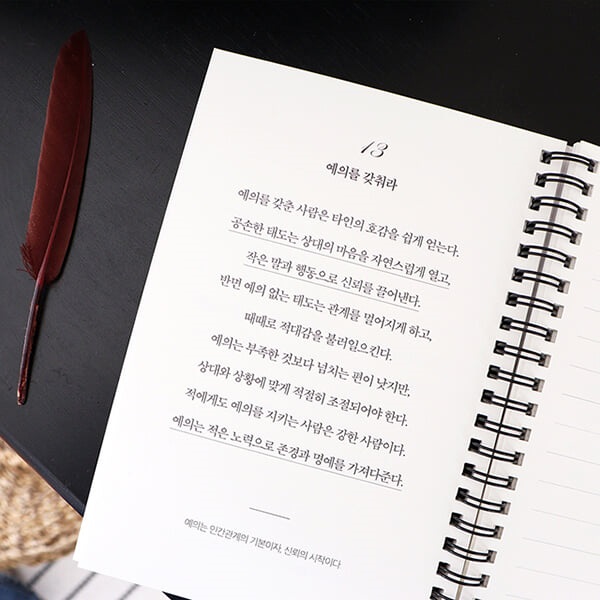 13
예의를 갖춰라
예의를 갖춘 사람은 타인의 호감을 쉽게 얻는다.
공손한 태도는 상대의 마음을 자연스럽게 열고,
작은 말과 행동으로 신뢰를 끌어낸다.
반면 예의 없는 태도는 관계를 멀어지게 하고,
때때로 적대감을 불러일으킨다.
예의는 부족한 것보다 넘치는 편이 낫지만,
상대와 상황에 맞게 적절히 조절되어야 한다.
적에게도 예의를 지키는 사람은 강한 사람이다.
예의는 적은 노력으로 존경과 명예를 가져다준다.
예의는 인간관계의 기본이자, 신뢰의 시작이다